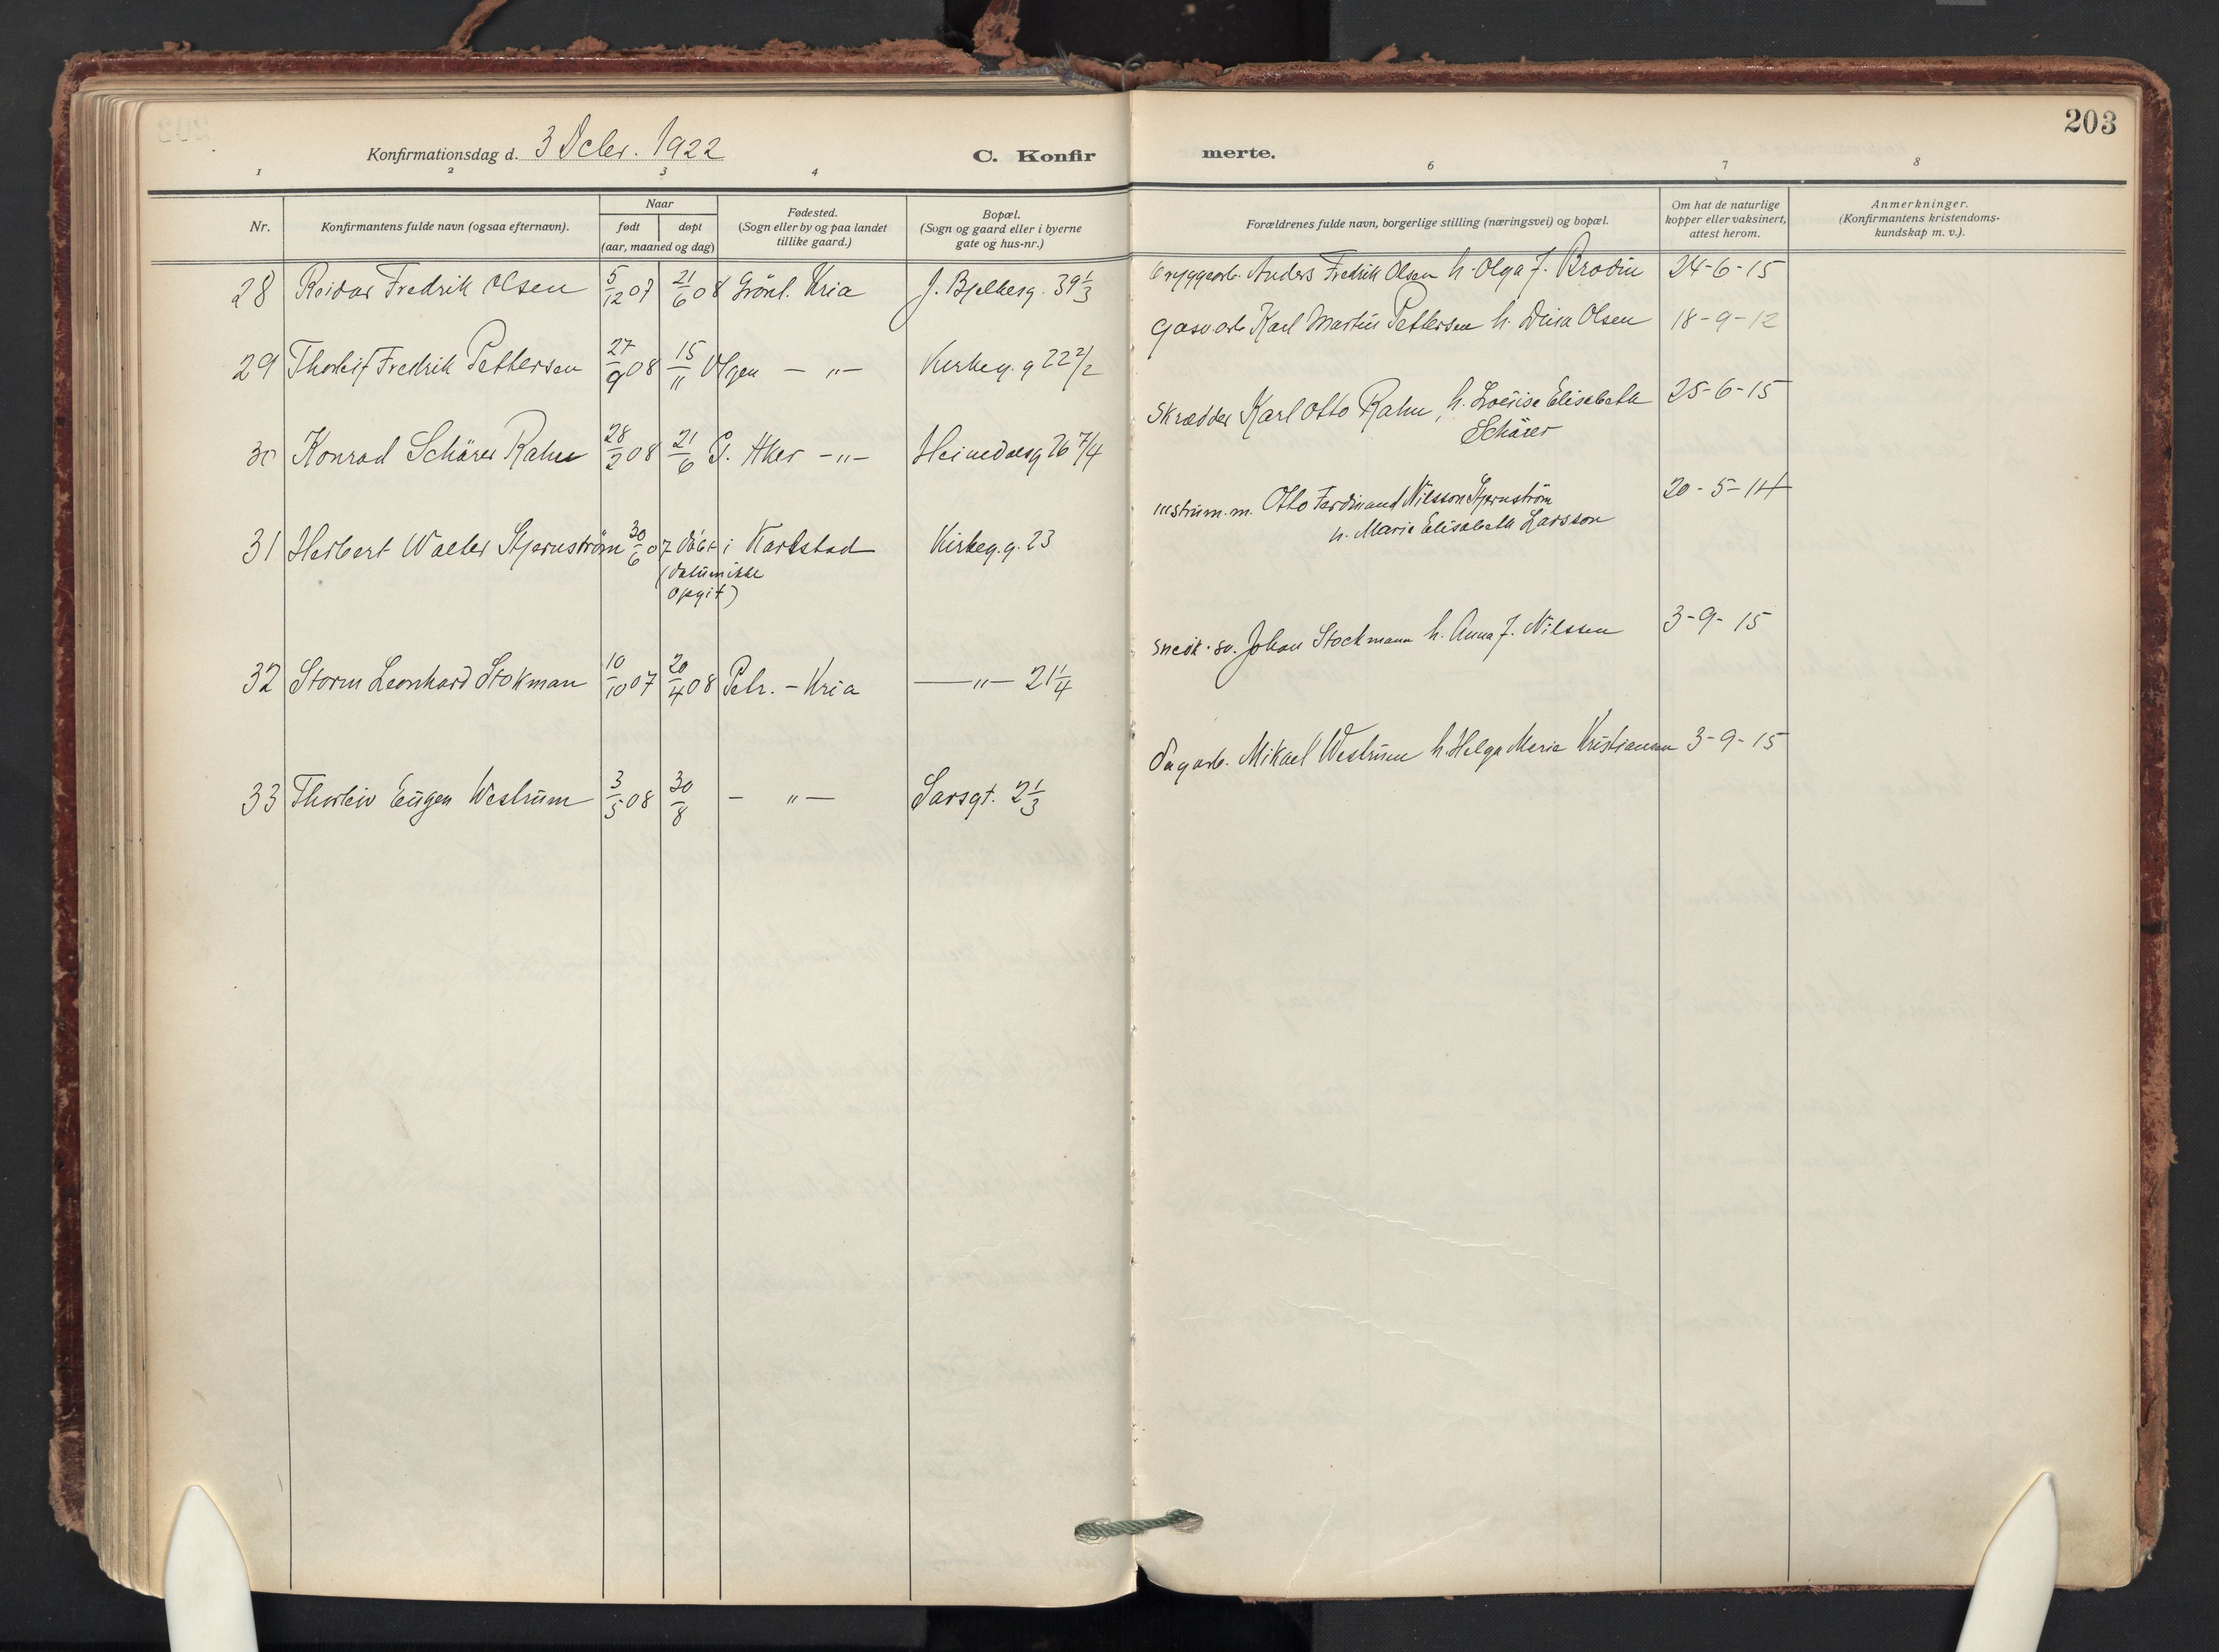 203
Konfirmationsdag d. 3 Decbr. 1922
C. Konfir
merte.
1 2 3 4 6 7 8
Nr.
Konfirmantens fulde navn (ogsaa efternavn).
Naar
født døpt
(aar, maaned og dag)
Fødested.
(Sogn eller by og paa landet
tillike gaard.)
Bopæl.
(Sogn og gaard eller i byerne
gate og hus-nr.)
Forældrenes fulde navn, borgerlige stilling (næringsvei) og bopæl.
Om hat de naturlige
kopper eller vaksinert,
attest herom.
Anmerkninger.
(Konfirmantens kristendoms-
kundskap m. v.).
28 Reidar Fredrik Olsen 5/12 07 21/6 08 Grönl. Kria J. Bjelkesg. 39 1/3
bryggearb. Anders Fredrik Olsen h. Olga J. Brodin 24-6-15
29 Thorleif Fredrik Pettersen 27/9 08 15/11 Vlgen - " - Kirkeg. g 22 2/2
gasv arb Karl Martin Pettersen h. Dina Olsen 18-9-12
30 Konrad Schärer Rahn 28/2 08 21/6 G. Aker - " - Heimdalsg 26 7/4
Skrædder Karl Otto Rahn, h. Louise Elisabeth
Schärer
25-6-15
31 Herbert Walter Stjernström 30/6 07 döbt i Karlstad Kirkeg. g. 23
(datum ikke
opgit)
instrum. m. Otto Ferdinand Nilsson Stjernström
h. Marie Elisabeth Larsson
20-5-14
32 Storm Leonhard Stokman 10/10 07 20/4 08 Petr. - Kria - " - 21 1/4
sned. sv. Johan Stockmann h. Anna J. Nilssen 3-9-15
33 Thorleiv Eugen Westrum 3/5 08 30/8 - " - Sarsgt. 2 1/3
dagarb. Mikael Westrum h. Helga Marie Kristiansen 3-9-15